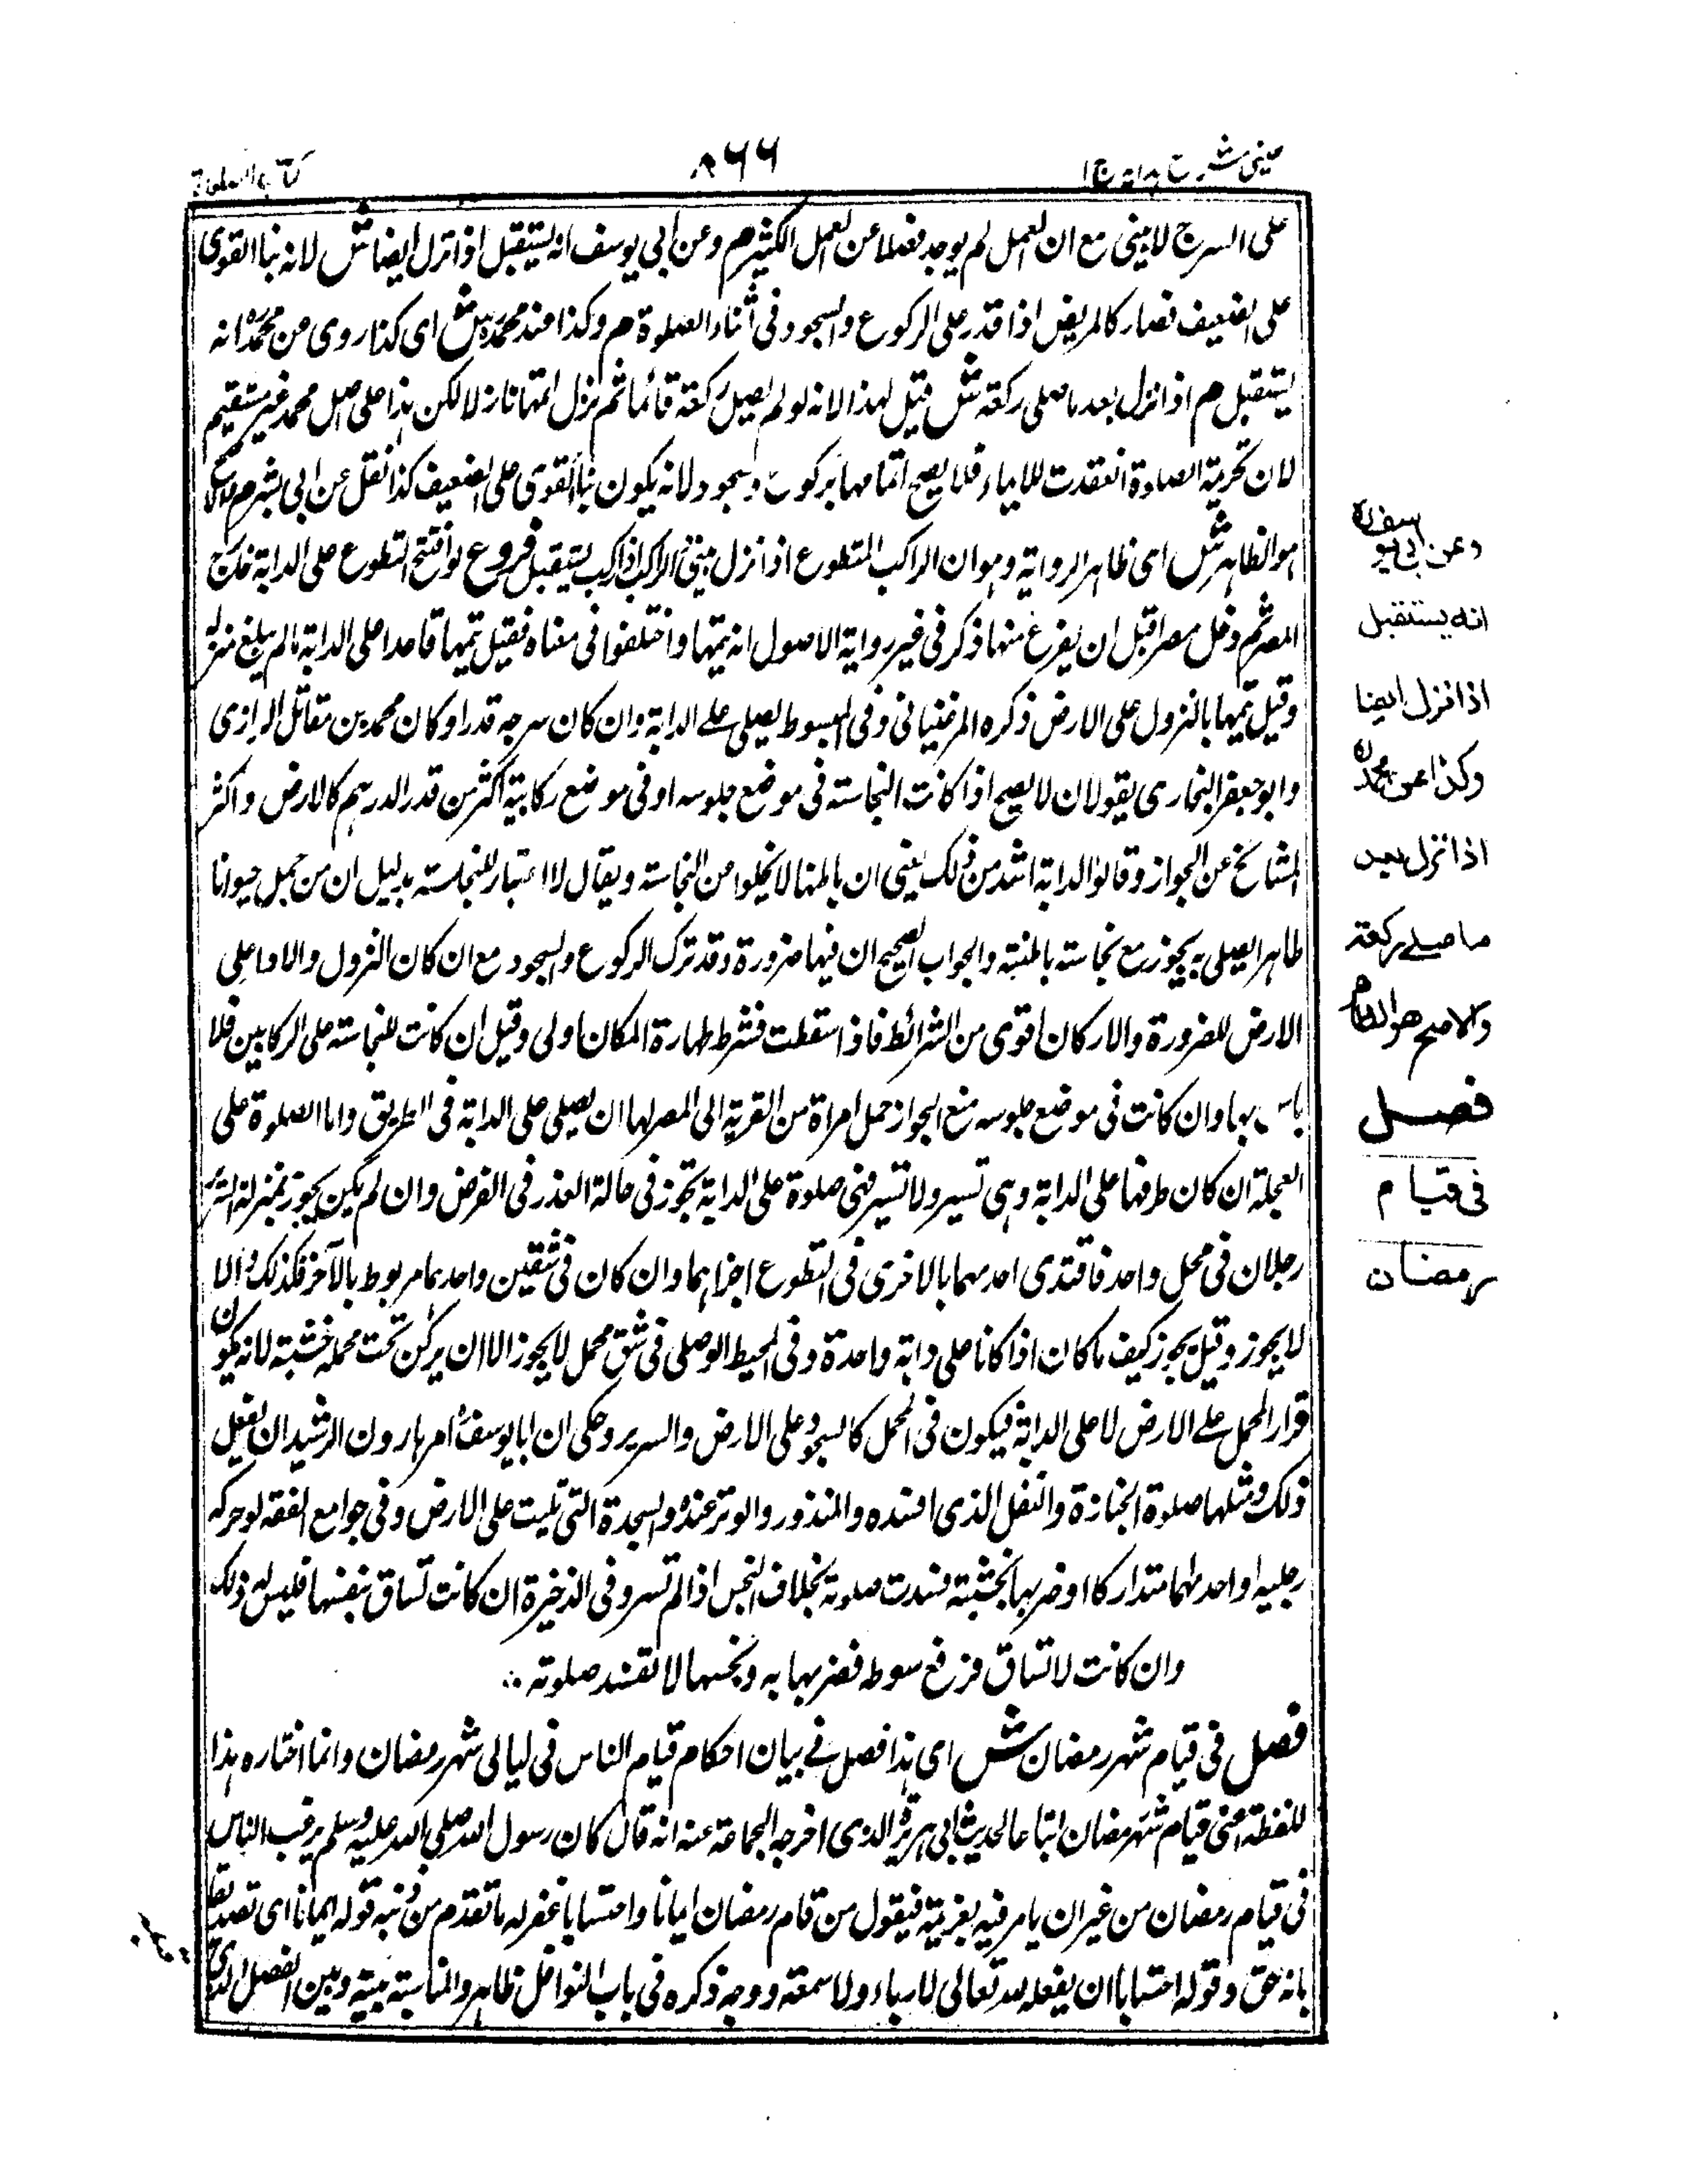 عینی شرح هدایه ج ۱
۸۶۶
كتاب الصلوة
على السرج لا يبنى مع ان العمل لم يوجد فضلا عن العمل الكثير م وعن ابي يوسف انه يستقبل اذا نزل ايضا ش لانه بنا القوى
على الضعيف فصار كالمريض اذا قدر على الركوع والسجود فى اثناء الصلوة م وكذا عند محمد ش اى كذا روى عن محمد انه
يستقبل م اذا نزل بعد ما صلى ركعة ش قيل لهذا لانه لو لم يصل ركعة قائما ثم نزل اتمها نازلا لكن هذا على اصل محمد غير مستقيم
لان تحريمة الصلوة انعقدت للايماء فلا يصح اتمامها بركوع وسجود لانه يكون بنا القوى على الضعيف كذا نقل عن ابى بشر م والاصح
هو الظاهر ش اى ظاهر الرواية وهو ان الراكب المتطوع اذا نزل يبنى الراكب اذا ركب يستقبل فروع لو افتتح التطوع على الدابة خارج
المصر ثم دخل مصرا قبل ان يفرغ منها ذكر فى غير رواية الاصول انه يتمها واختلفوا فى معناه فقيل يتمها قاعدا على الدابة ما لم يبلغ منزله
وقيل يتمها بالنزول على الارض ذكره المرغينانى وفى المبسوط يصلى على الدابة وان كان سرجه قذرا وكان محمد بن مقاتل الرازى
وابو جعفر البخارى يقولان لا يصح اذا كانت النجاسة فى موضع جلوسه او فى موضع ركابيه اكثر من قدر الدرهم كالارض واكثر
المشائخ عن الجواز وقالوا الدابة اشد من ذلك يعنى ان باطنها لا يخلوا من النجاسة ويقال لا اعتبار للنجاسة بدليل ان من حمل حيوانا
طاهرا يصلى به يجوز مع نجاسة باطنه والجواب الصحيح ان فيها ضرورة وقد ترك الركوع والسجود مع ان كان النزول والاداء على
الارض للضرورة والاركان اقوى من الشرائط فاذا سقطت فشرط طهارة المكان اولى وقيل ان كانت النجاسة على الركابين فلا
باس بها وان كانت فى موضع جلوسه منع الجواز حمل امراة من القرية الى المصر لها ان يصلى على الدابة فى الطريق واما الصلوة على
العجلة ان كان طرفها على الدابة وهى تسير ولا تسير فهى صلوة على الدابة يجوز فى حالة العذر فى الفرض وان لم يكن يجوز بمنزلة السرير
رجلان فى محمل واحد فاقتدى احدهما بالاخرى فى التطوع اجزاهما وان كان فى شقين واحدهما مربوط بالآخر فكذلك والا
لا يجوز وقيل يجوز كيف ما كان اذا كانا على دابة واحدة وفى المحيط لو صلى فى شق محمل لا يجوز الا ان يركن تحت محمله خشبة لانه يكون
قرار المحمل على الارض لا على الدابة فيكون فى المحمل كالسجود على الارض والسرير وحكى ان ابا يوسف امر هارون الرشيد ان يفعل
ذلك ومثلها صلوة الجنازة والنفل الذى افسده والمنذور والوتر عنده والسجدة التى تليت على الارض وفى جوامع الفقه لو حركه
رجليه او احدهما متداركا او ضربها بخشبة فسدت صلوته بخلاف النخس اذا لم تسر وفى الذخيرة ان كانت تساق بنفسها فليس له ذلك
وان كانت لا تساق فرفع سوطه فضربها به ونخسها لا تفسد صلوته
فصل فى قيام شهر رمضان ش اى هذا فصل فى بيان احكام قيام الناس فى ليالى شهر رمضان وانما اختاره هذا
اللفظة اعنى قيام شهر رمضان اتباعا لحديث ابى هريرة الذى اخرجه الجماعة عنه انه قال كان رسول الله صلى الله عليه وسلم يرغب الناس
فى قيام رمضان من غير ان يامر فيه بعزيمة فيقول من قام رمضان ايمانا واحتسابا غفر له ما تقدم من ذنبه قوله ايمانا اى تصديقا
بانه حق وقوله احتسابا ان يفعله لله تعالى لا رياء ولا سمعة ووجه ذكره فى باب النوافل ظاهر والمناسبة بينه وبين الفصل الذى
وعن ابى يوسف ره
انه يستقبل
اذا نزل ايضا
وكذا عن محمد ره
اذا نزل بعد
ما صلے ركعة
والاصح هو الظاهر
فصل
فى قيام
رمضان